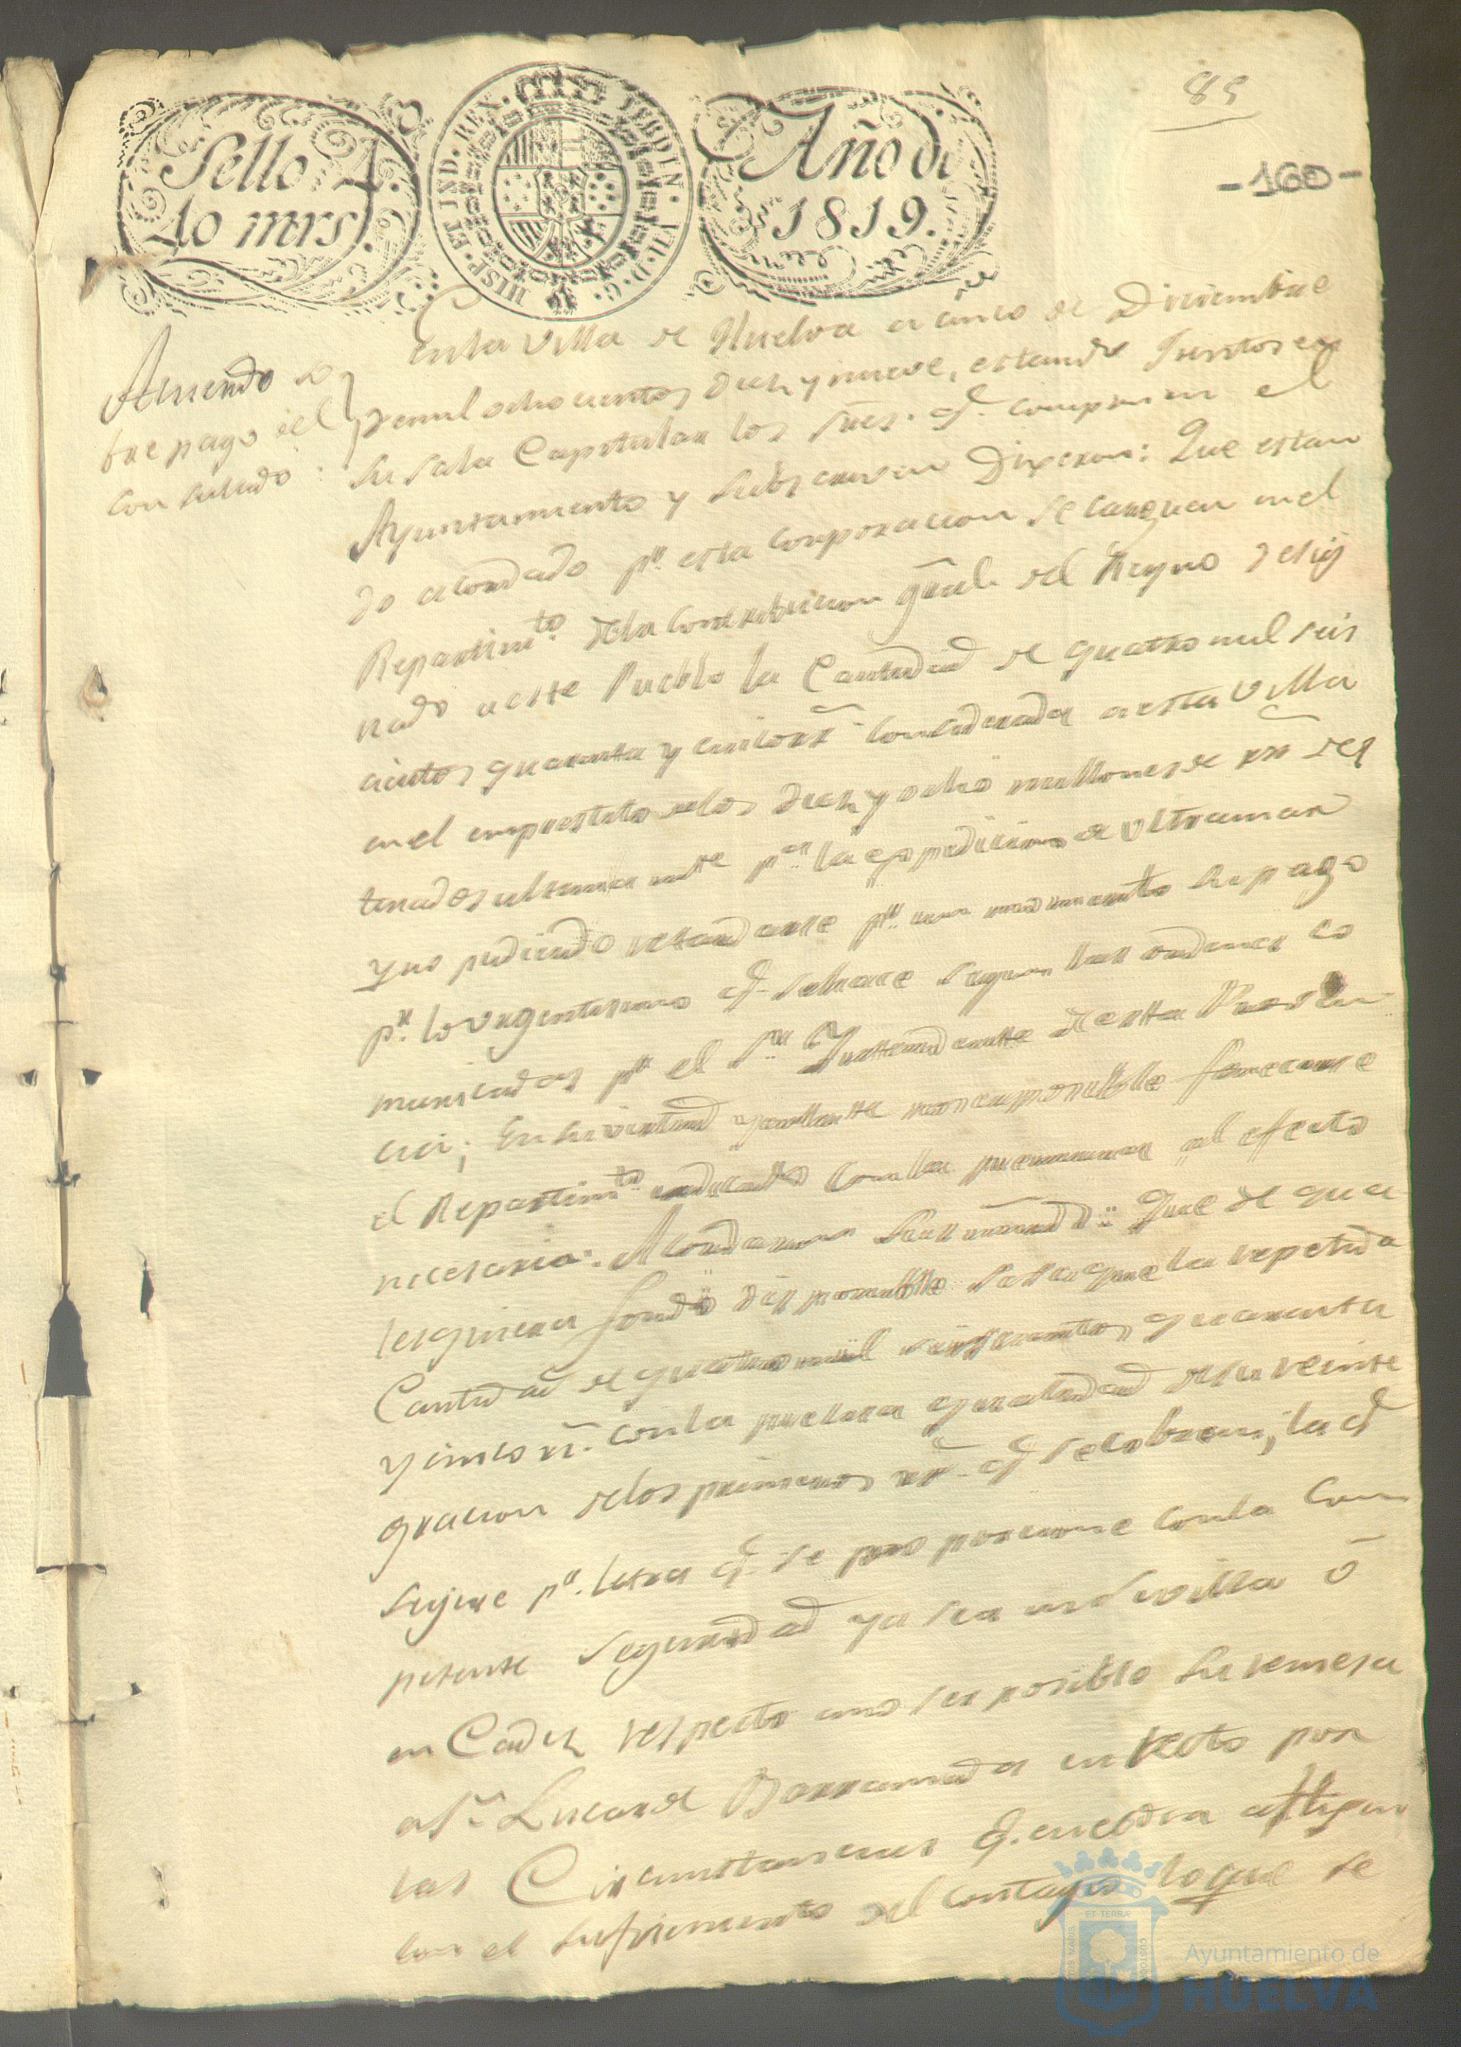 85
-160-
Sello 4º
40 mrs.
HISP. ET IND. REX. FERDIN. VII. D. G.
Año de
1819.
Acuerdo so
bre pago del
Consulado:
En la Villa de Huelva a cinco de Diciembre
de mil ochocientos diez y nueve, estando Juntos en
su Sala Capitular los Sres. q. componen el
Ayuntamiento y subscriven Dixeron: Que estan
do acordado pr. esta corporacion se carguen en el
Repartimto. de la Contribucion gral. del Reyno desig
nado a este Pueblo la Cantidad de quatro mil seis
cientos quarenta y cinco rs. considerada a esta Villa
en el emprestito de los diez y ocho millones de rs. des
tinados ultimamte. pa. la expedicion de ultramar
y no pudiendo retardarse pr. un momento su pago
pr. lo urgentisimo q. se hace segun las ordenes co
municadas pr. el Sr. Yntendente de esta Provin
cia; En su virtud y
el Repartimto. indicado con la premura al efecto
necesaria: Acordaron Sus mrds: Que de qua
lesquiera fondo disponible se saque la repetida
Cantidad de quatro mil seiscientos quarenta
y cinco rs. con la precisa qualidad de su reinte
gracion de los primeros rs. q. se cobren, la q.
se gire pr. letra q. se proporcione con la Com
petente seguridad ya sea en Sevilla ó
en Cadiz respecto a no ser posible su remesa
a Sn. Lucar de Barrameda en recto por
las Circunstancias q. en el dia afligen
con el sufrimiento del contagio lo que se
Ayuntamiento de
HUELVA